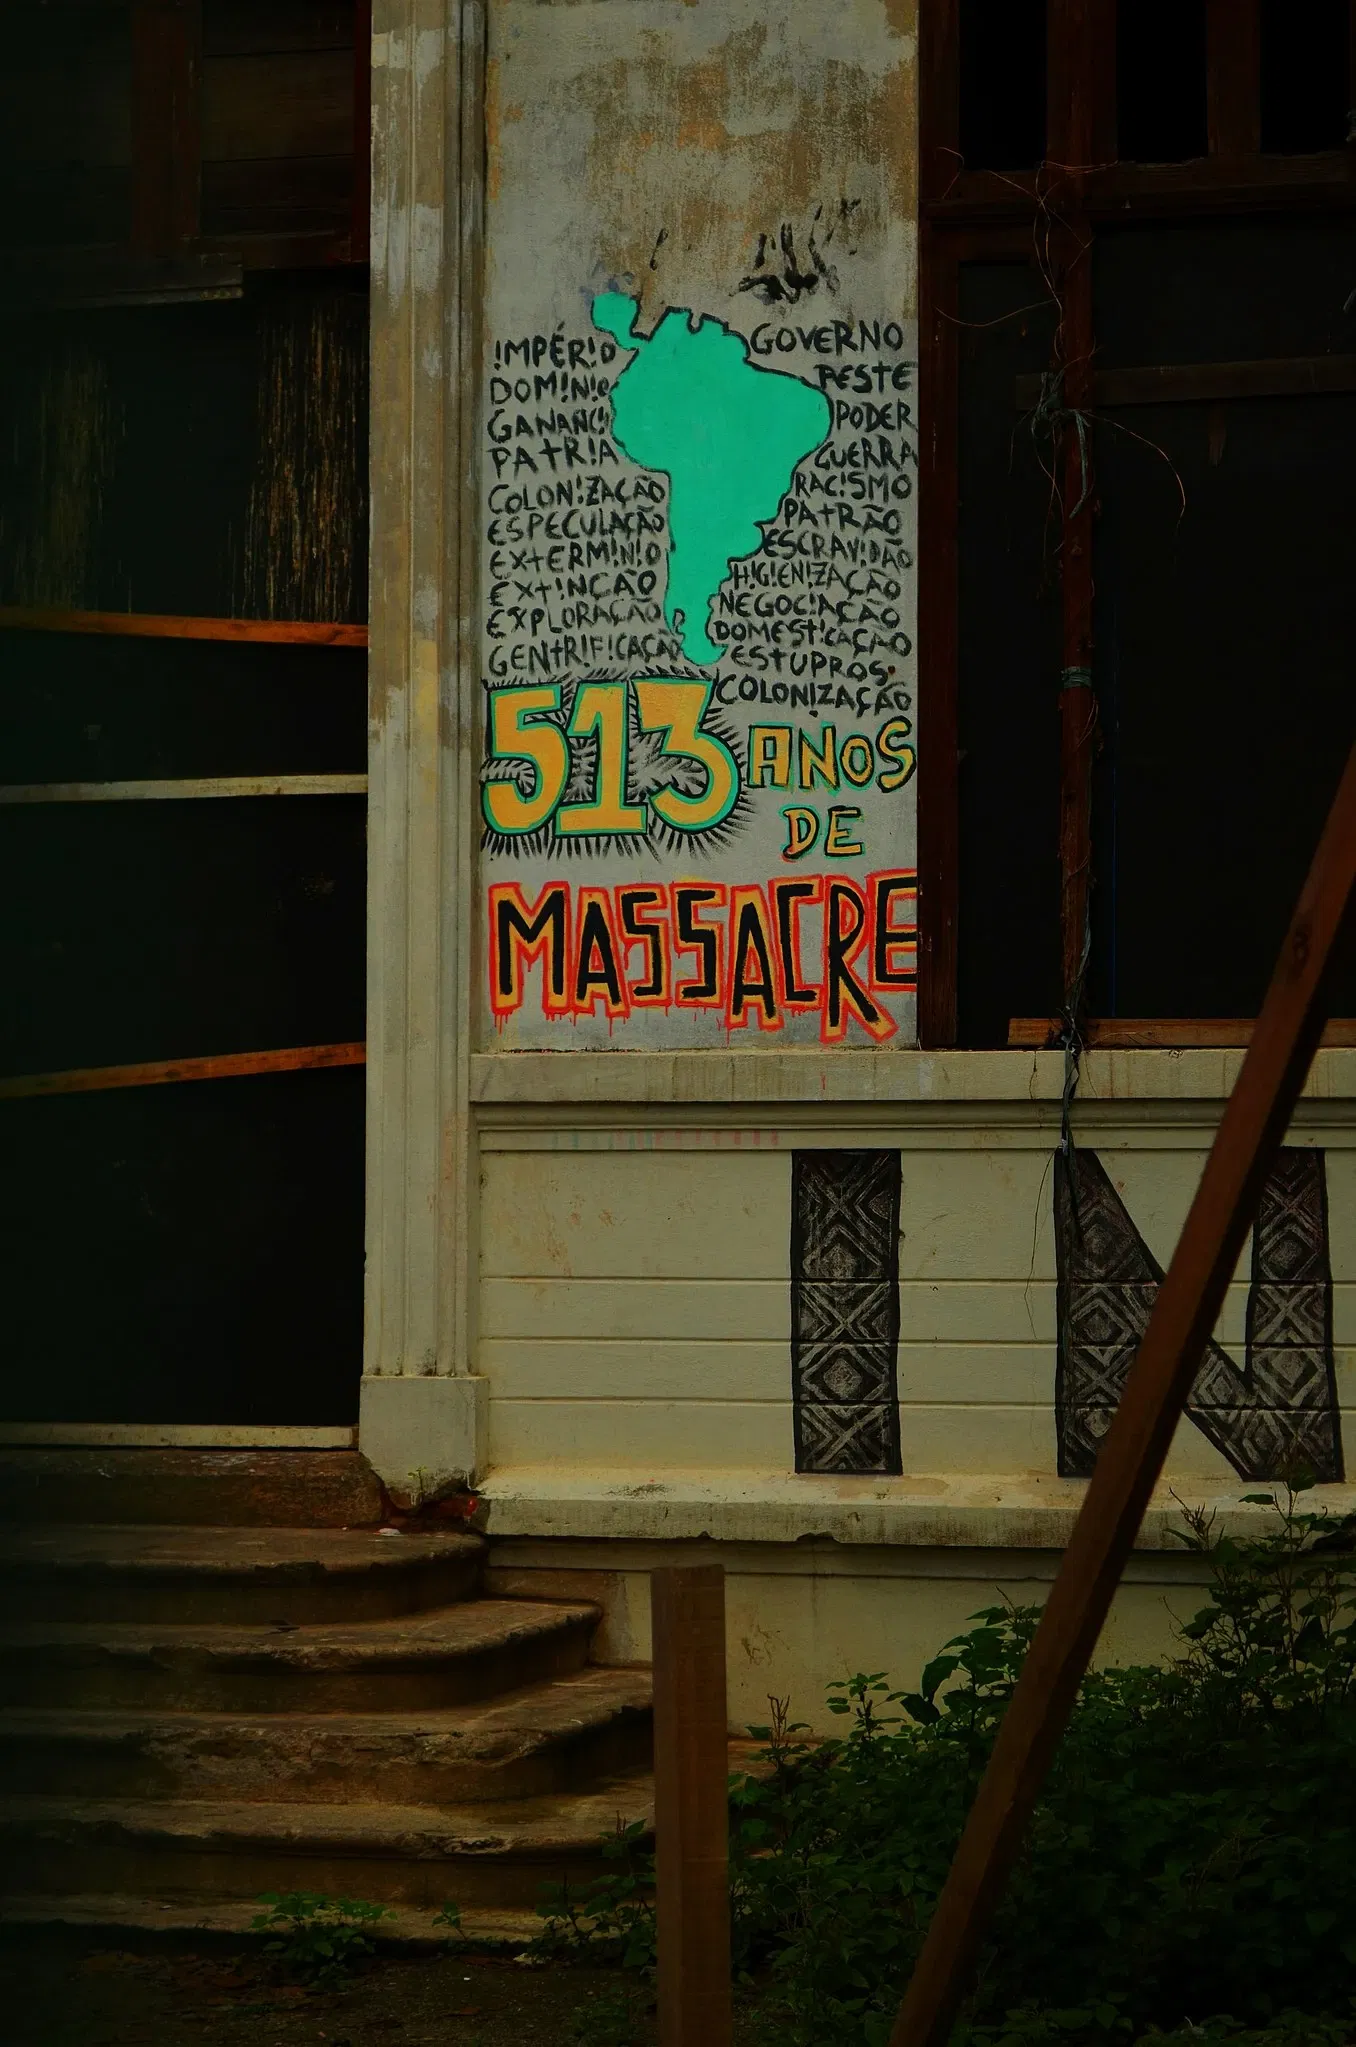 IMPÉRIO
DOMÍNIO
GANANCI
PATRIA
COLONIZAÇÃO
ESPECULAÇÃO
EXTERMINIO
EXTINCÃO
EXPLORAÇÃO
GENTRIFICAÇÃO
GOVERNO
PESTE
PODER
GUERRA
RACISMO
PATRÃO
ESCRAVIDÃO
HIGIENIZAÇÃO
NEGOCIAÇÃO
DOMESTICAÇÃO
ESTUPROS
COLONIZAÇÃO
513 ANOS
DE
MASSACRE
IN